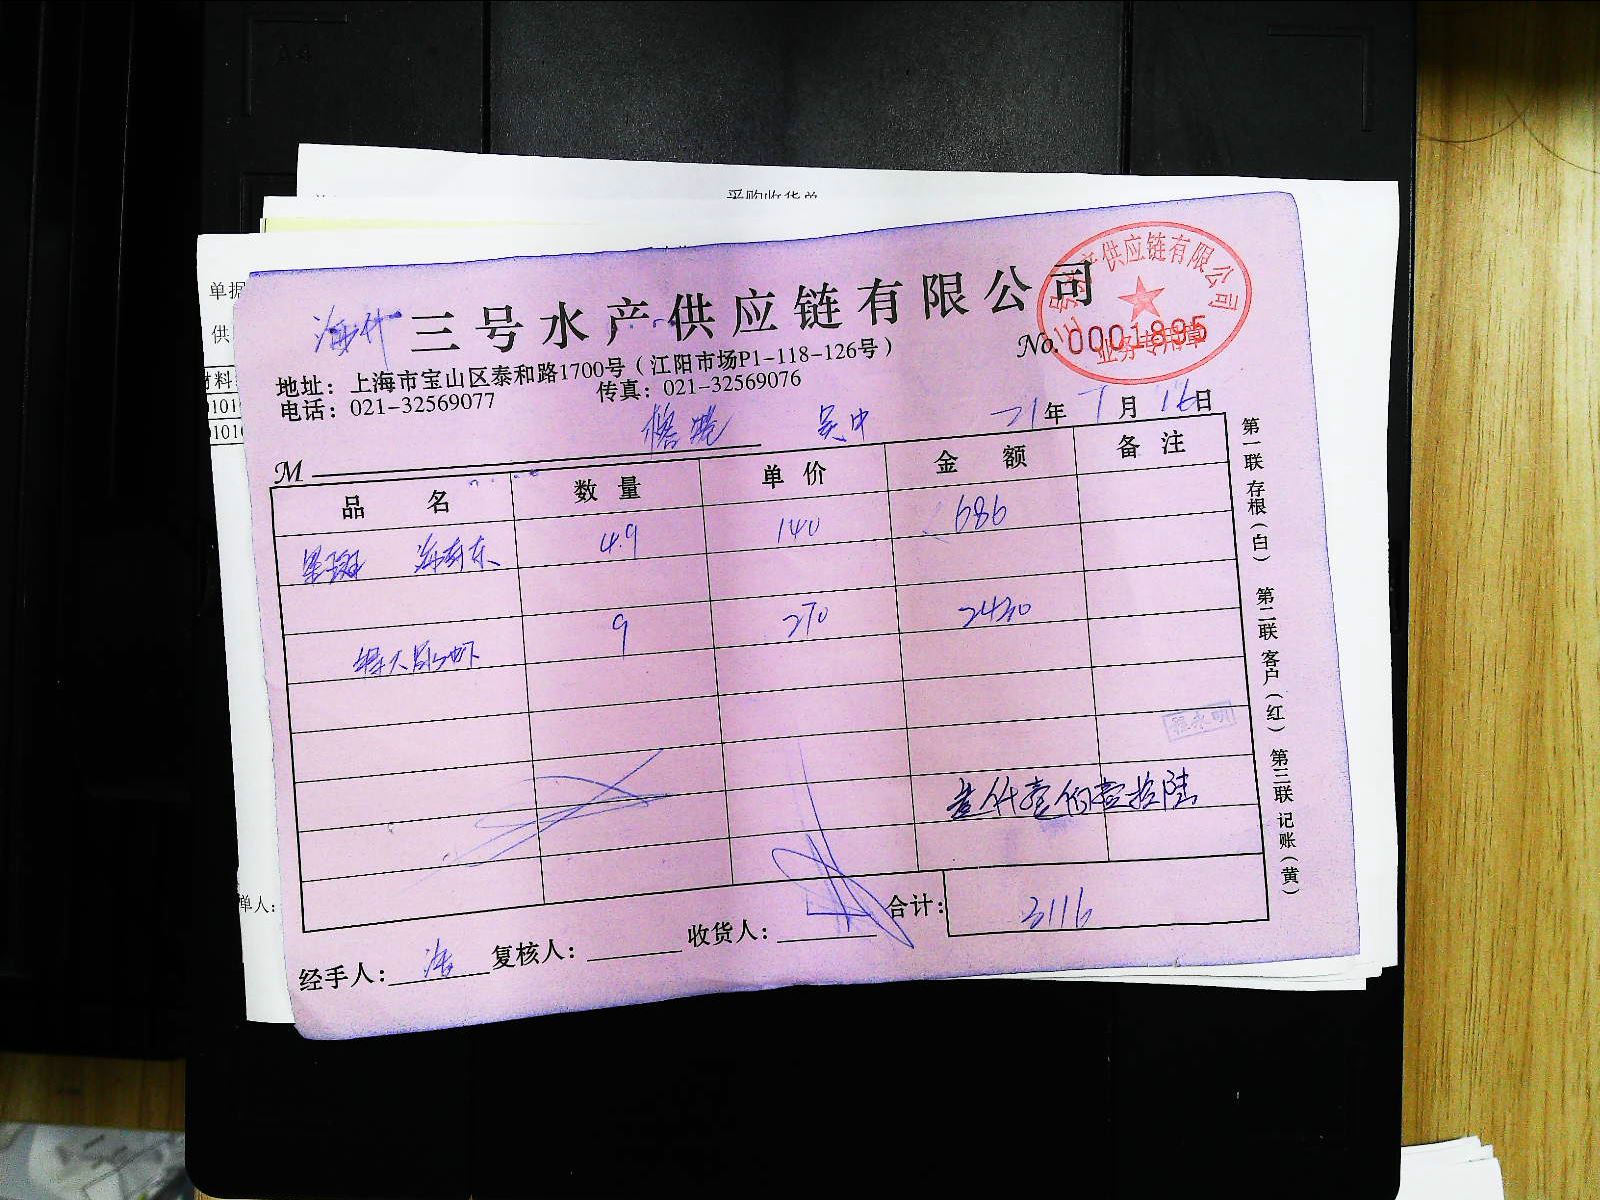 A4
采购收货单
单据
供
材料
单人:
三号水产供应链有限公司
产供应链有限公司
业务专用章
No. 0001895
地址：上海市宝山区泰和路1700号（江阳市场P1-118-126号）
电话：021-32569077 传真：021-32569076
吴中 21年 7月 16日
M
品名 数量 单价 金额 备注
4.9 140 686
9 270 2430
程永明
叁仟壹佰壹拾陆
合计: 3116
经手人: 海 复核人: 收货人:
第一联 存根（白） 第二联 客户（红） 第三联 记账（黄）